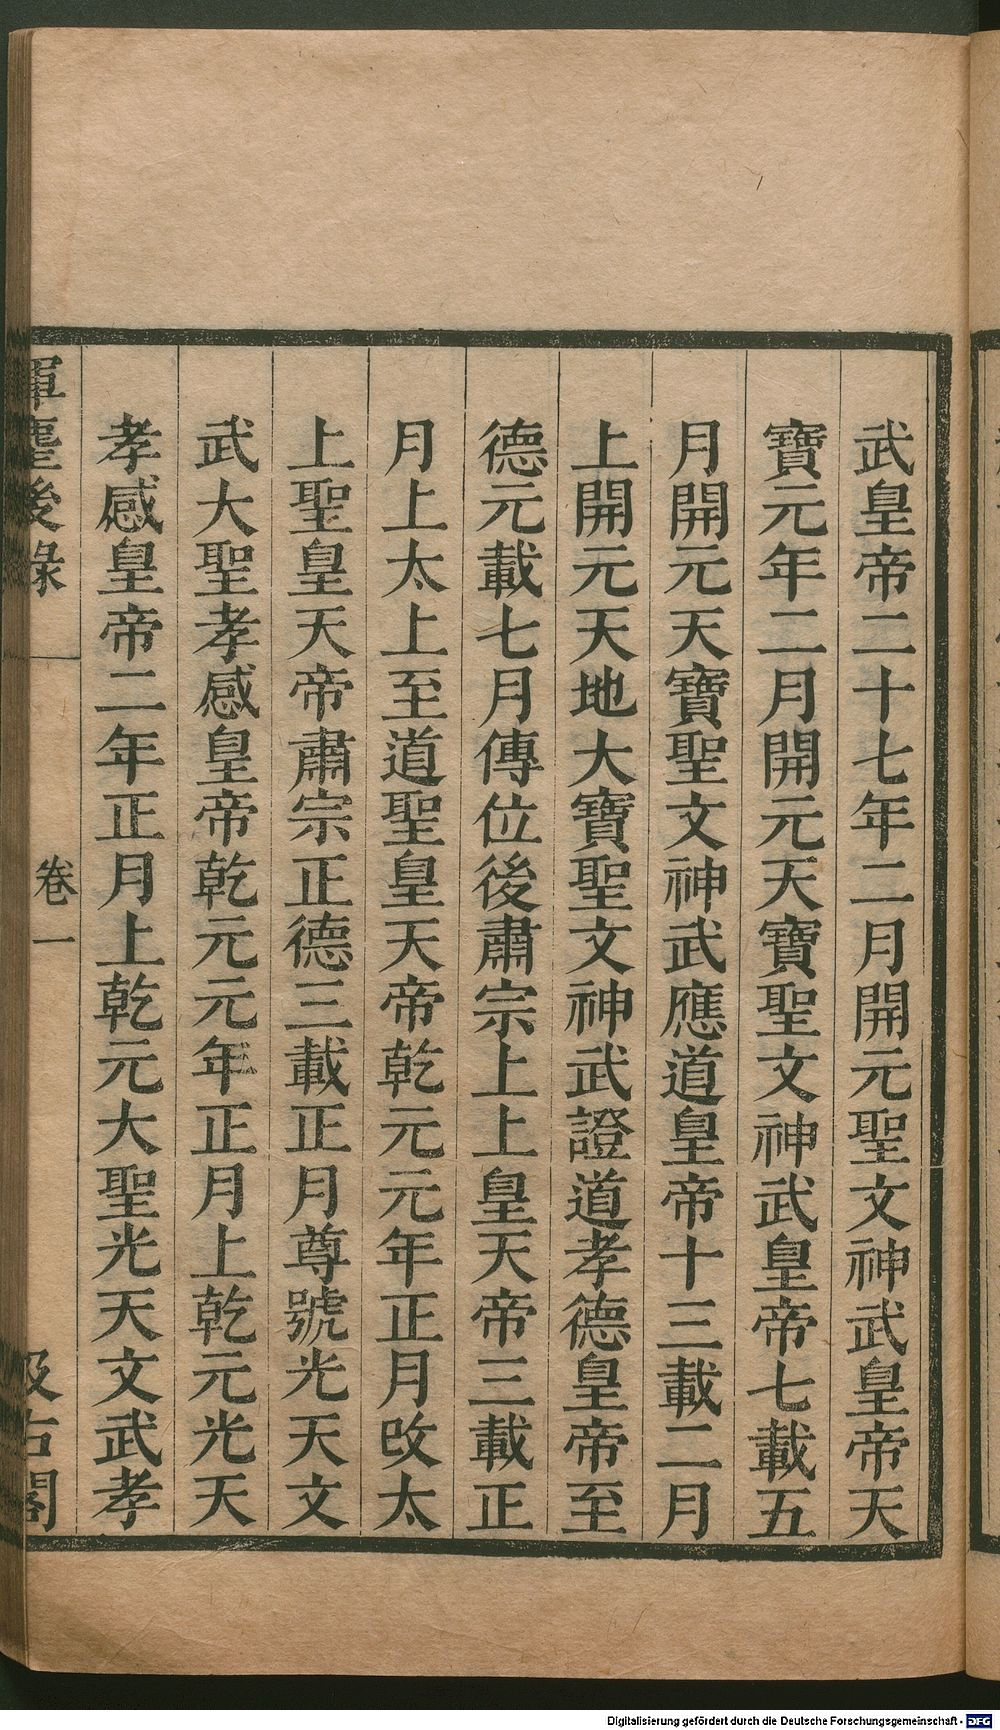 武皇帝二十七年二月開元聖文神武皇帝天
寶元年二月開元天寶聖文神武皇帝七載五
月開元天寶聖文神武應道皇帝十三載二月
上開元天地大寶聖文神武證道孝德皇帝至
德元載七月傳位後肅宗上上皇天帝三載正
月上太上至道聖皇天帝乾元元年正月改太
上聖皇天帝肅宗正德三載正月尊號光天文
武大聖孝感皇帝乾元元年正月上乾元光天
孝感皇帝二年正月上乾元大聖光天文武孝
揮麈後錄
卷一
汲古閣
Digitalisierung gefördert durch die Deutsche Forschungsgemeinschaft - DFG